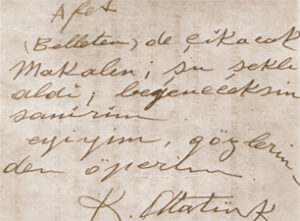 Afet
(Belleten) de çıkacak
Makalen; şu şekli
aldı; beğeneceksin
sanırım
eyiyim, gözlerin
den öperim
K. Atatürk